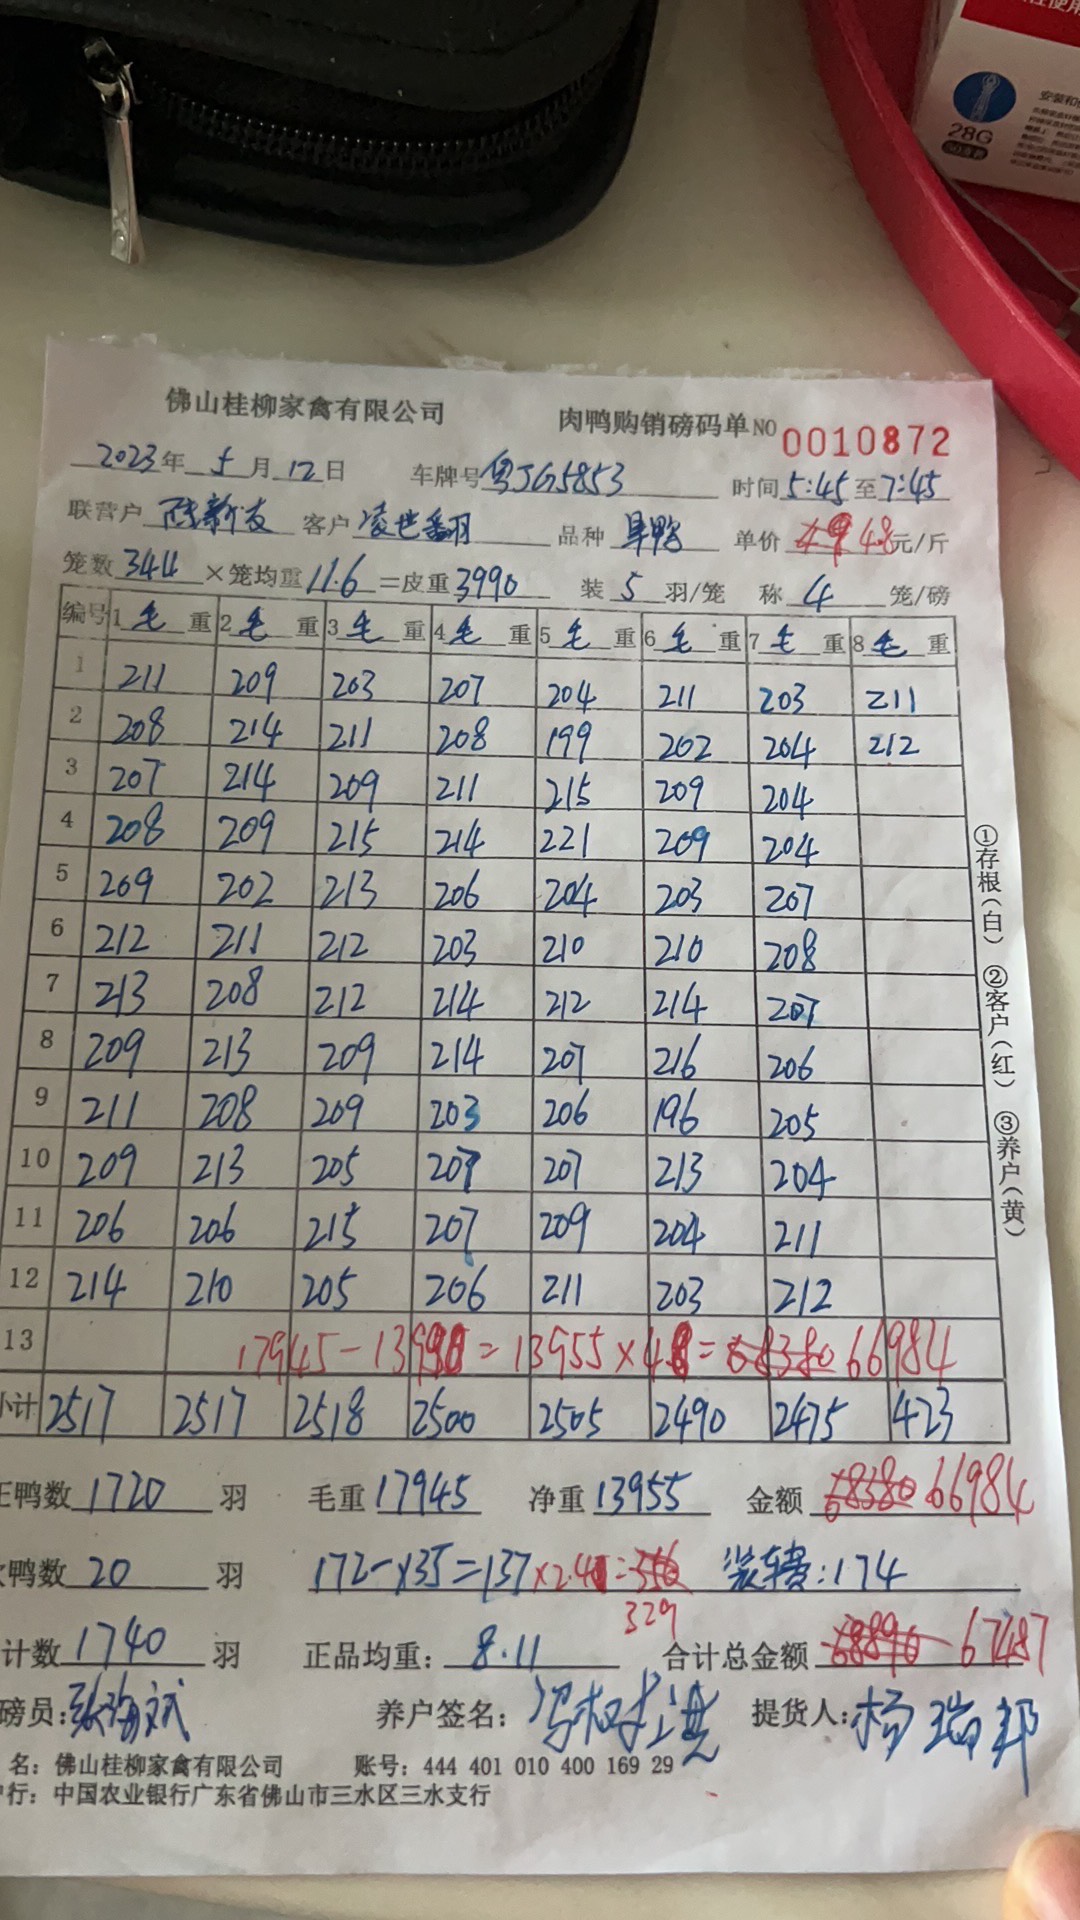 28G
佛山桂柳家禽有限公司 肉鸭购销磅码单 NO 0010872
2023年 5月12日 车牌号 粤JG5853 时间 5:45至7:45
联营户 陆新友 客户 凌世翻 品种 旱鸭 单价 4.8元/斤
笼数 344 ×笼均重 11.6 =皮重 3990 装 5 羽/笼 称 4 笼/磅
编号 1毛重 2毛重 3毛重 4毛重 5毛重 6毛重 7毛重 8毛重
1 211 209 203 207 204 211 203 211
2 208 214 211 208 199 202 204 212
3 207 214 209 211 215 209 204
4 208 209 215 214 221 209 204
5 209 202 213 206 204 203 207
6 212 211 212 203 210 210 208
7 213 208 212 214 212 214 207
8 209 213 209 214 207 216 206
9 211 208 209 203 206 196 205
10 209 213 205 207 207 213 204
11 206 206 215 207 209 204 211
12 214 210 205 206 211 203 212
13 17945-13990=13955×4.8=68380 66984
小计 2517 2517 2518 2500 2505 2490 2475 423
正鸭数 1720 羽 毛重 17945 净重 13955 金额 68380 66984
鸭数 20 羽 172-×35=137×2.4= 329 装车费:174
计数 1740 羽 正品均重: 8.11 合计总金额 68890 67487
磅员: 养户签名: 提货人:杨瑞邦
名: 佛山桂柳家禽有限公司 账号: 444 401 010 400 169 29
行: 中国农业银行广东省佛山市三水区三水支行
①存根(白) ②客户(红) ③养户(黄)